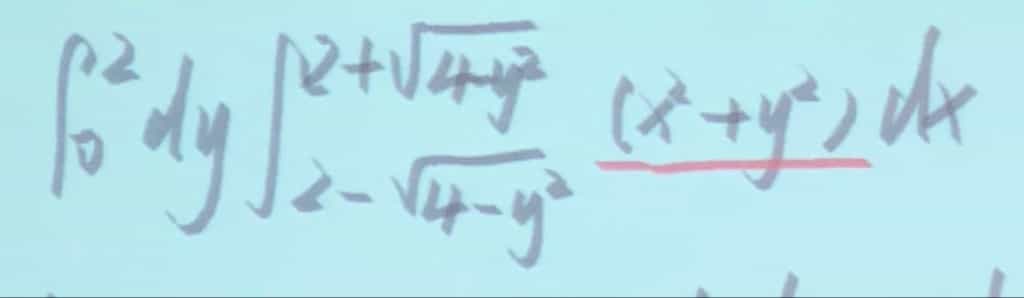 ∫₀² dy ∫_{2-√(4-y²)}^{2+√(4-y²)} (x²+y²) dx